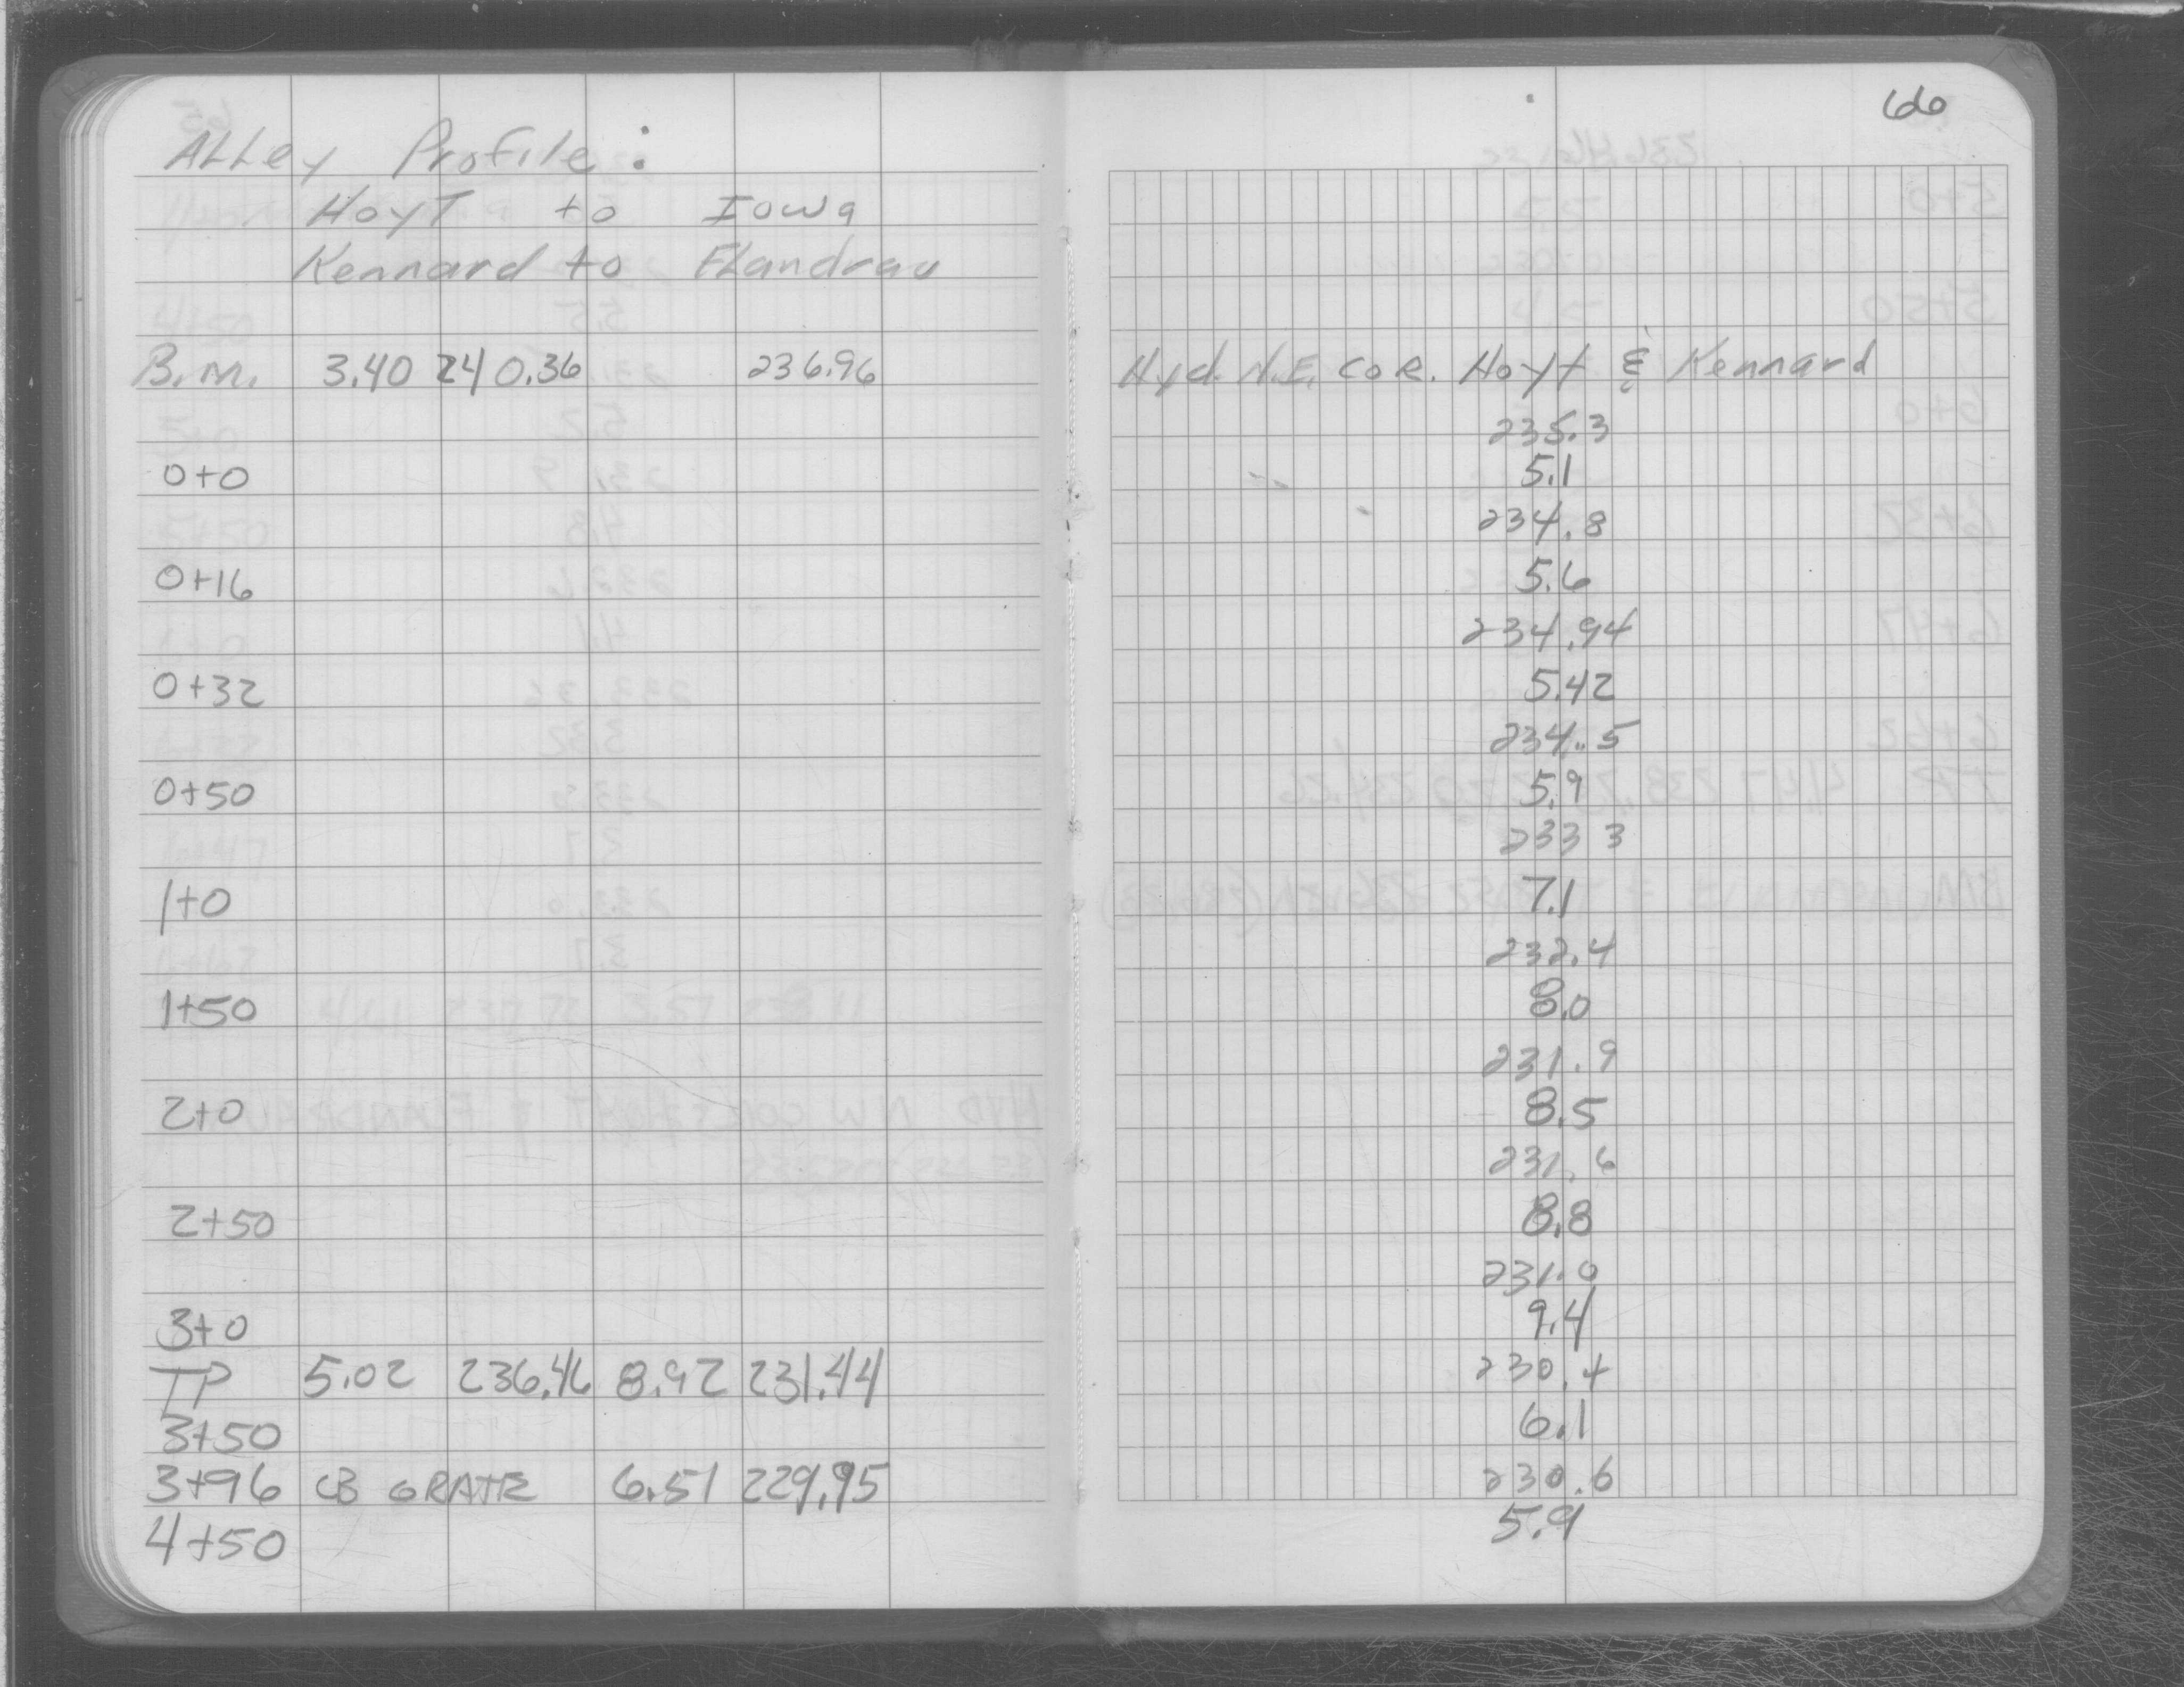 66
Alley Profile:
Hoyt to Iowa
Kennard to Flandrau
B.M. 3.40 240.36 236.96 Hyd. N.E. COR. Hoyt & Kennard
235.3
0+0 5.1
234.8
0+16 5.6
234.94
0+32 5.42
234.5
0+50 5.9
233 3
1+0 7.1
232.4
1+50 8.0
231.9
2+0 8.5
231.6
2+50 8.8
231.0
3+0 9.4
TP 5.02 236.46 8.92 231.44 230.4
3+50 6.1
3+96 CB GRATE 6.51 229.95 230.6
4+50 5.9